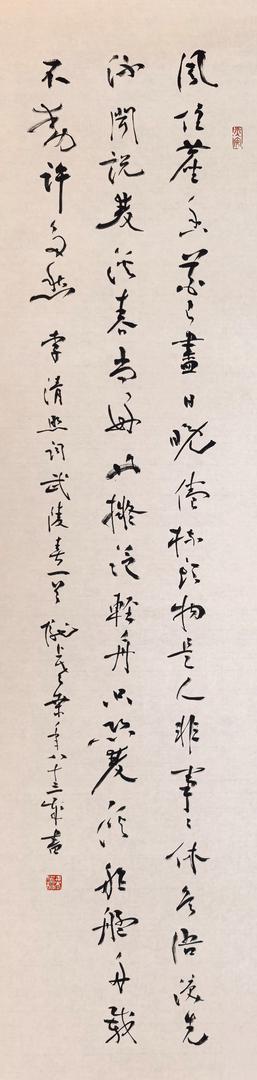 風住塵香花已盡日晚倦梳頭物是人非事々休欲語淚先
流聞説雙溪春尚好也擬泛輕舟只恐雙溪舴艋舟載
不動許多愁 李清照詞武陵春一首 年八十三歲書